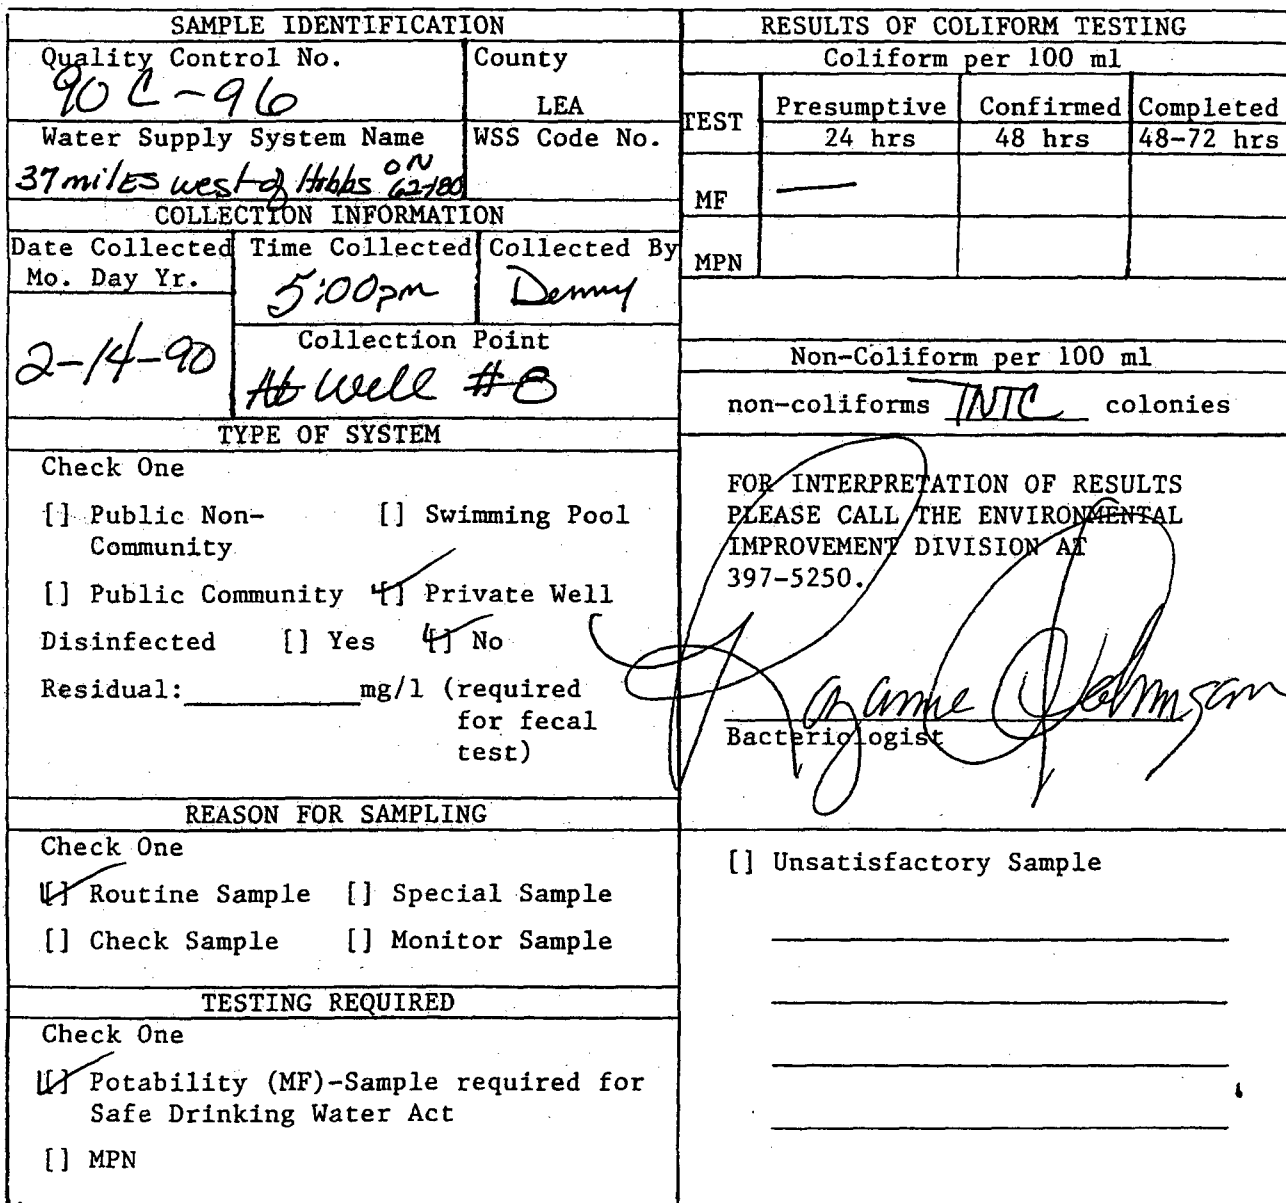 SAMPLE IDENTIFICATION
Quality Control No.
90C-96
County
LEA
Water Supply System Name
37 miles west of Hobbs ON 62-180
WSS Code No.
COLLECTION INFORMATION
Date Collected
Mo. Day Yr.
2-14-90
Time Collected
5:00pm
Collected By
Denny
Collection Point
Well #8
TYPE OF SYSTEM
Check One
[] Public Non-
Community
[] Swimming Pool
[] Public Community
[] Private Well
Disinfected [] Yes [] No
Residual:____________mg/l (required
for fecal
test)
REASON FOR SAMPLING
Check One
[] Routine Sample [] Special Sample
[] Check Sample [] Monitor Sample
TESTING REQUIRED
Check One
[] Potability (MF)-Sample required for
Safe Drinking Water Act
[] MPN
RESULTS OF COLIFORM TESTING
Coliform per 100 ml
TEST
Presumptive Confirmed Completed
24 hrs 48 hrs 48-72 hrs
MF —
MPN
Non-Coliform per 100 ml
non-coliforms TNTC colonies
FOR INTERPRETATION OF RESULTS
PLEASE CALL THE ENVIRONMENTAL
IMPROVEMENT DIVISION AT
397-5250.
Johnson
Bacteriologist
[] Unsatisfactory Sample